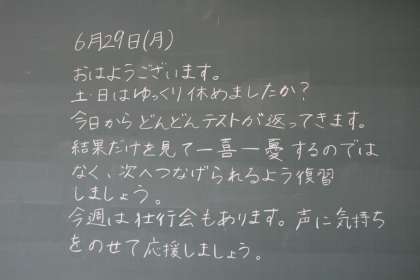 6月29日(月)
おはようございます。
土・日はゆっくり休めましたか?
今日からどんどんテストが返ってきます。
結果だけを見て一喜一憂するのでは
なく、次へつなげられるよう復習
しましょう。
今週は壮行会もあります。声に気持ち
をのせて応援しましょう。